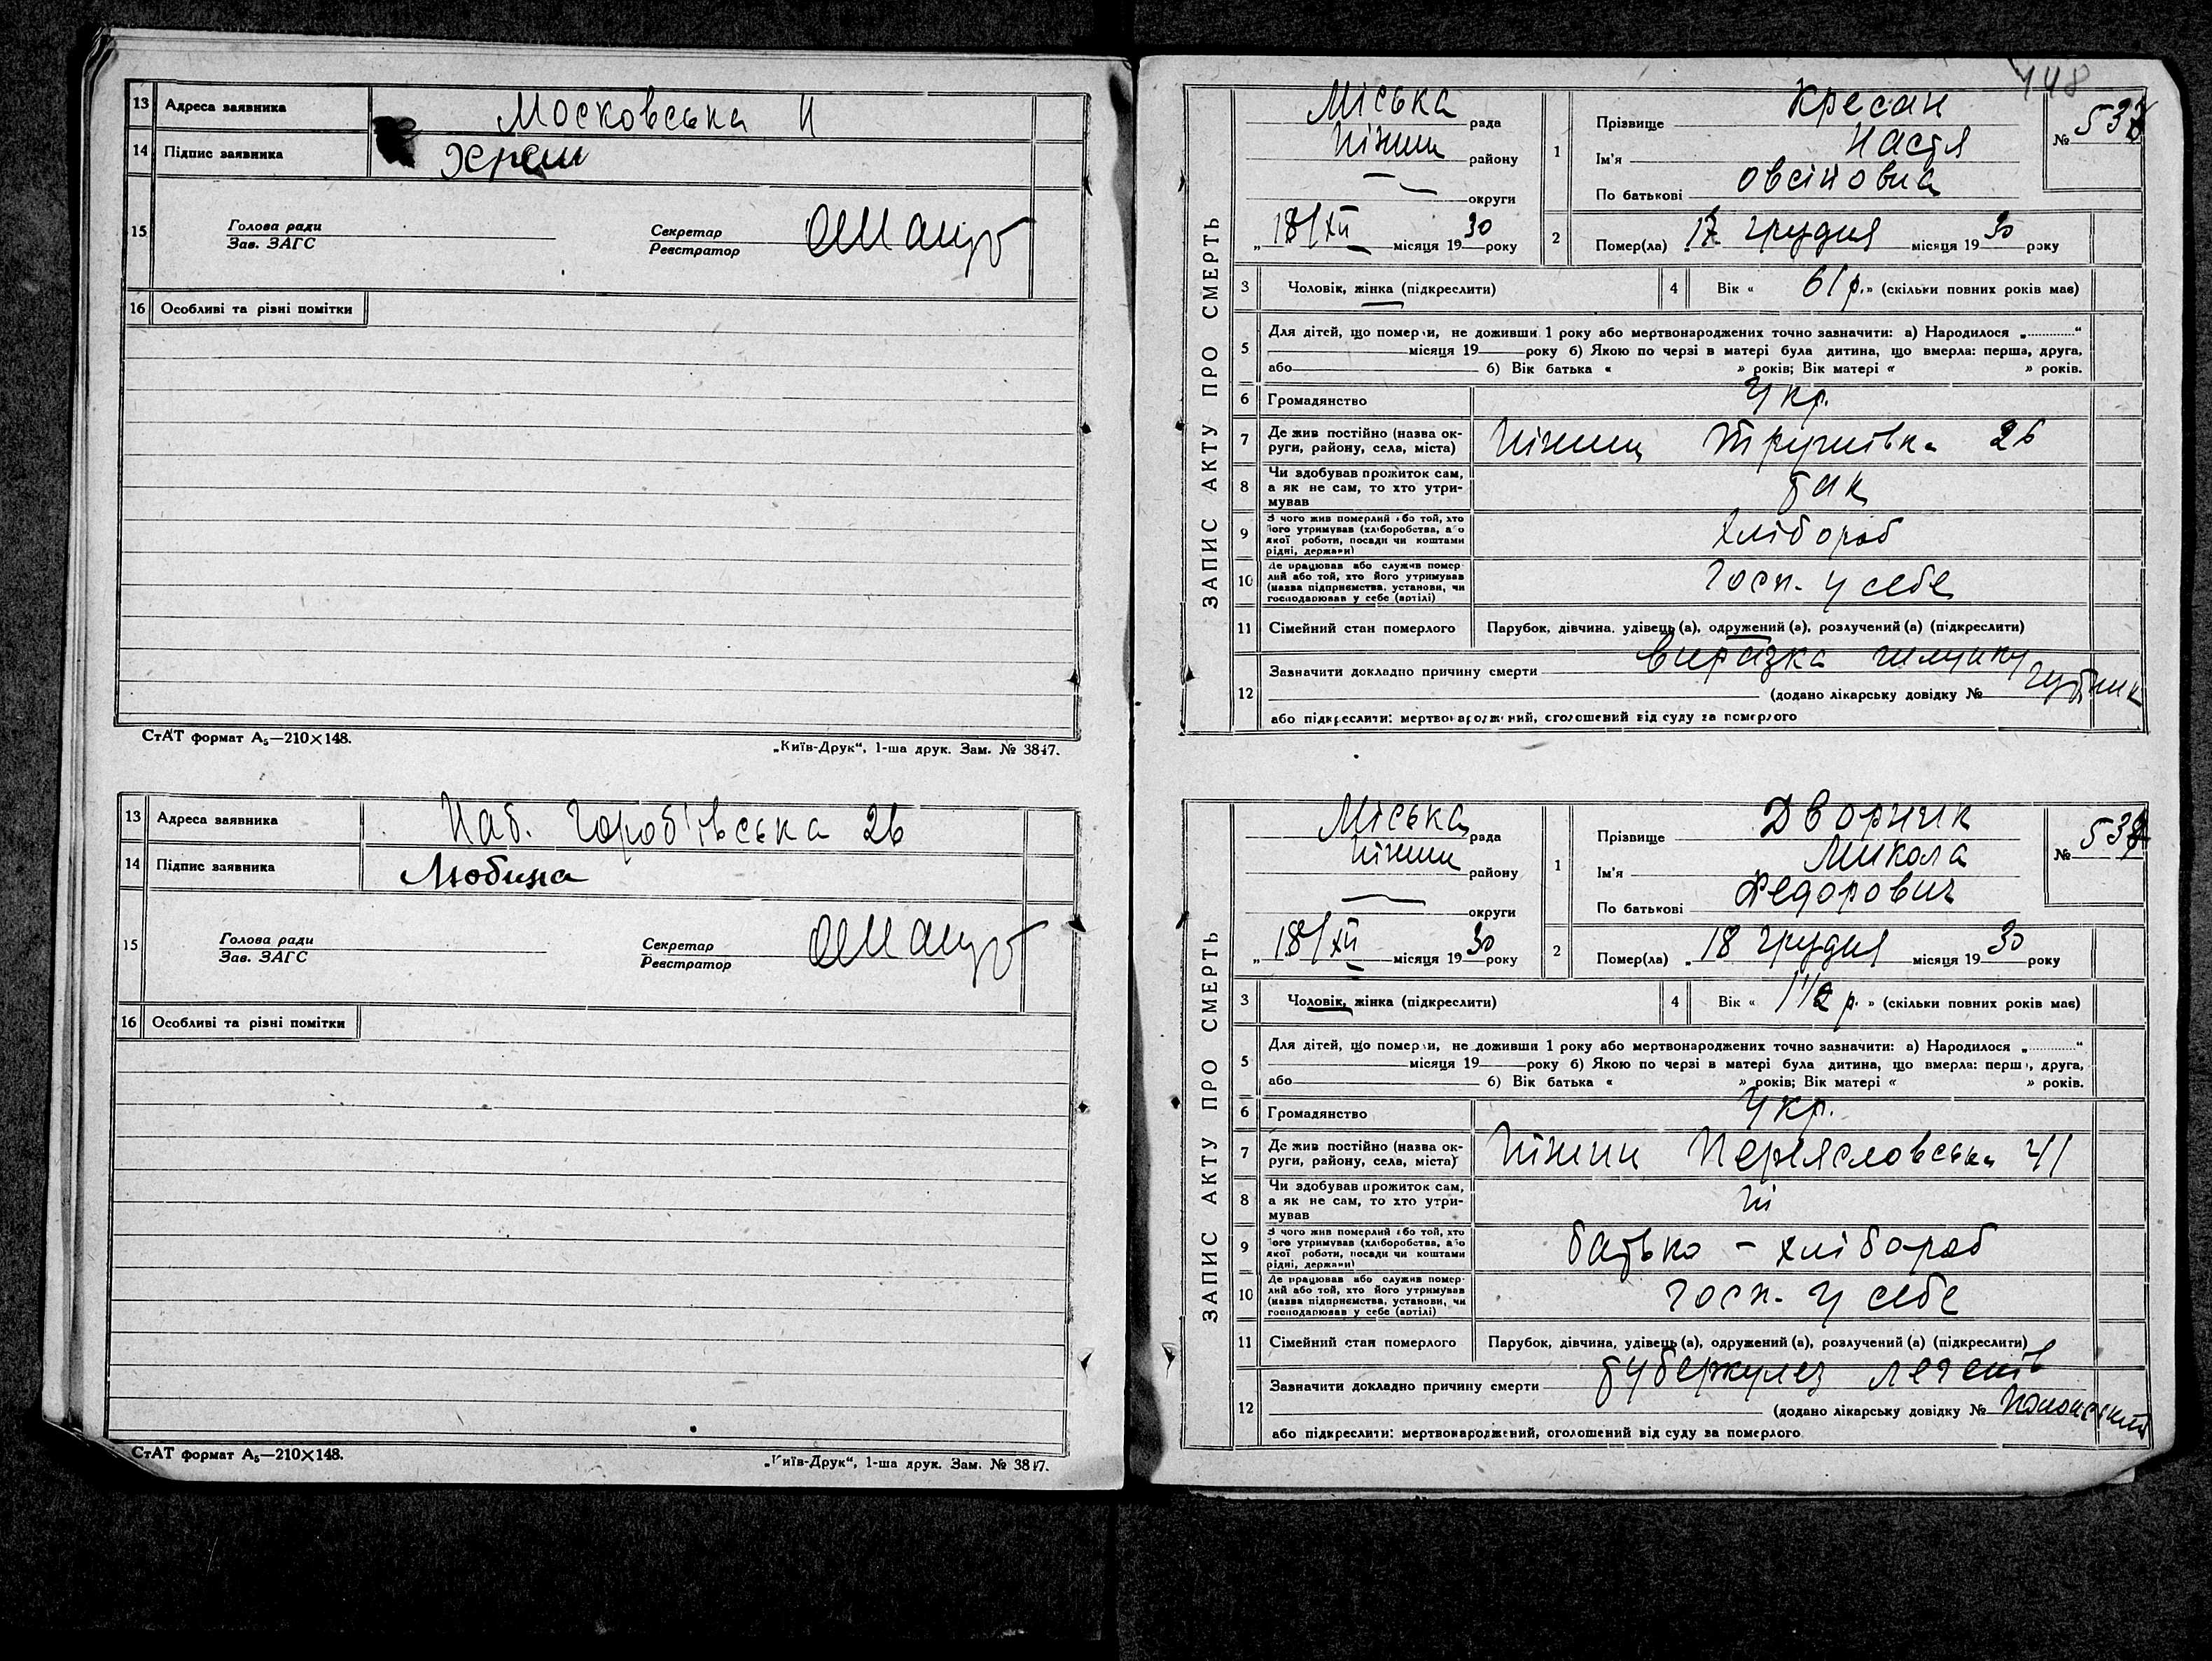 13 Адреса заявника Московська 11
14 Підпис заявника
15 Голова ради
Зав. ЗАГС
Секретар
Реєстратор
16 Особливі та різні помітки
СтАТ формат А₅—210×148.
„Київ-Друк“, 1-ша друк. Зам. № 3847.
13 Адреса заявника Наб. Гороб'івська 26
14 Підпис заявника Любина
15 Голова ради
Зав. ЗАГС
Секретар
Реєстратор
16 Особливі та різні помітки
СтАТ формат А₅—210×148.
„Київ-Друк“, 1-ша друк. Зам. № 3847.
148
ЗАПИС АКТУ ПРО СМЕРТЬ
Міська рада
Ніжин району
округи
„ 18/XII місяця 1930 року
1 Прізвище Кресан
Ім'я Настя
По батькові Овсіювна
№ 537
2 Помер(ла) 17 грудня місяця 1930 року
3 Чоловік, жінка (підкреслити)
4 Вік « 61 р. » (скільки повних років має)
5 Для дітей, що померли, не доживши 1 року або мертвонароджених точно зазначити: а) Народилося „ “
місяця 19 року б) Якою по черзі в матері була дитина, що вмерла: перша, друга,
або б) Вік батька « » років; Вік матері « » років.
6 Громадянство Укр.
7 Де жив постійно (назва округи, району, села, міста) Ніжин 26
8 Чи здобував прожиток сам,
а як не сам, то хто утримував так
9 З чого жив померлий або той, хто
його утримував (хліборобства, або
якої роботи, посади чи коштами
рідні, держави) хлібороб
10 Де працював або служив померлий або той, хто його утримував
(назва підприємства, установи, чи
господарював у себе (артілі) госп. у себе
11 Сімейний стан померлого Парубок, дівчина, удівець (а), одружений (а), розлучений (а) (підкреслити)
12 Зазначити докладно причину смерти виразка шлунку
(додано лікарську довідку №
або підкреслити: мертвонароджений, оголошений від суду за померлого
ЗАПИС АКТУ ПРО СМЕРТЬ
Міська рада
Ніжин району
округи
„ 18/XII місяця 1930 року
1 Прізвище Дворник
Ім'я Микола
По батькові Федорович
№ 538
2 Помер(ла) „ 18 грудня місяця 1930 року
3 Чоловік, жінка (підкреслити)
4 Вік « 1 1/2 р. » (скільки повних років має)
5 Для дітей, що померли, не доживши 1 року або мертвонароджених точно зазначити: а) Народилося „ “
місяця 19 року б) Якою по черзі в матері була дитина, що вмерла: перша, друга,
або б) Вік батька « » років; Вік матері « » років.
6 Громадянство Укр.
7 Де жив постійно (назва округи, району, села, міста) Ніжин Переясловська 41
8 Чи здобував прожиток сам,
а як не сам, то хто утримував ні
9 З чого жив померлий або той, хто
його утримував (хліборобства, або
якої роботи, посади чи коштами
рідні, держави) батько - хлібороб
10 Де працював або служив померлий або той, хто його утримував
(назва підприємства, установи, чи
господарював у себе (артілі) госп. у себе
11 Сімейний стан померлого Парубок, дівчина, удівець (а), одружений (а), розлучений (а) (підкреслити)
12 Зазначити докладно причину смерти туберкулез легенів
(додано лікарську довідку №
або підкреслити: мертвонароджений, оголошений від суду за померлого